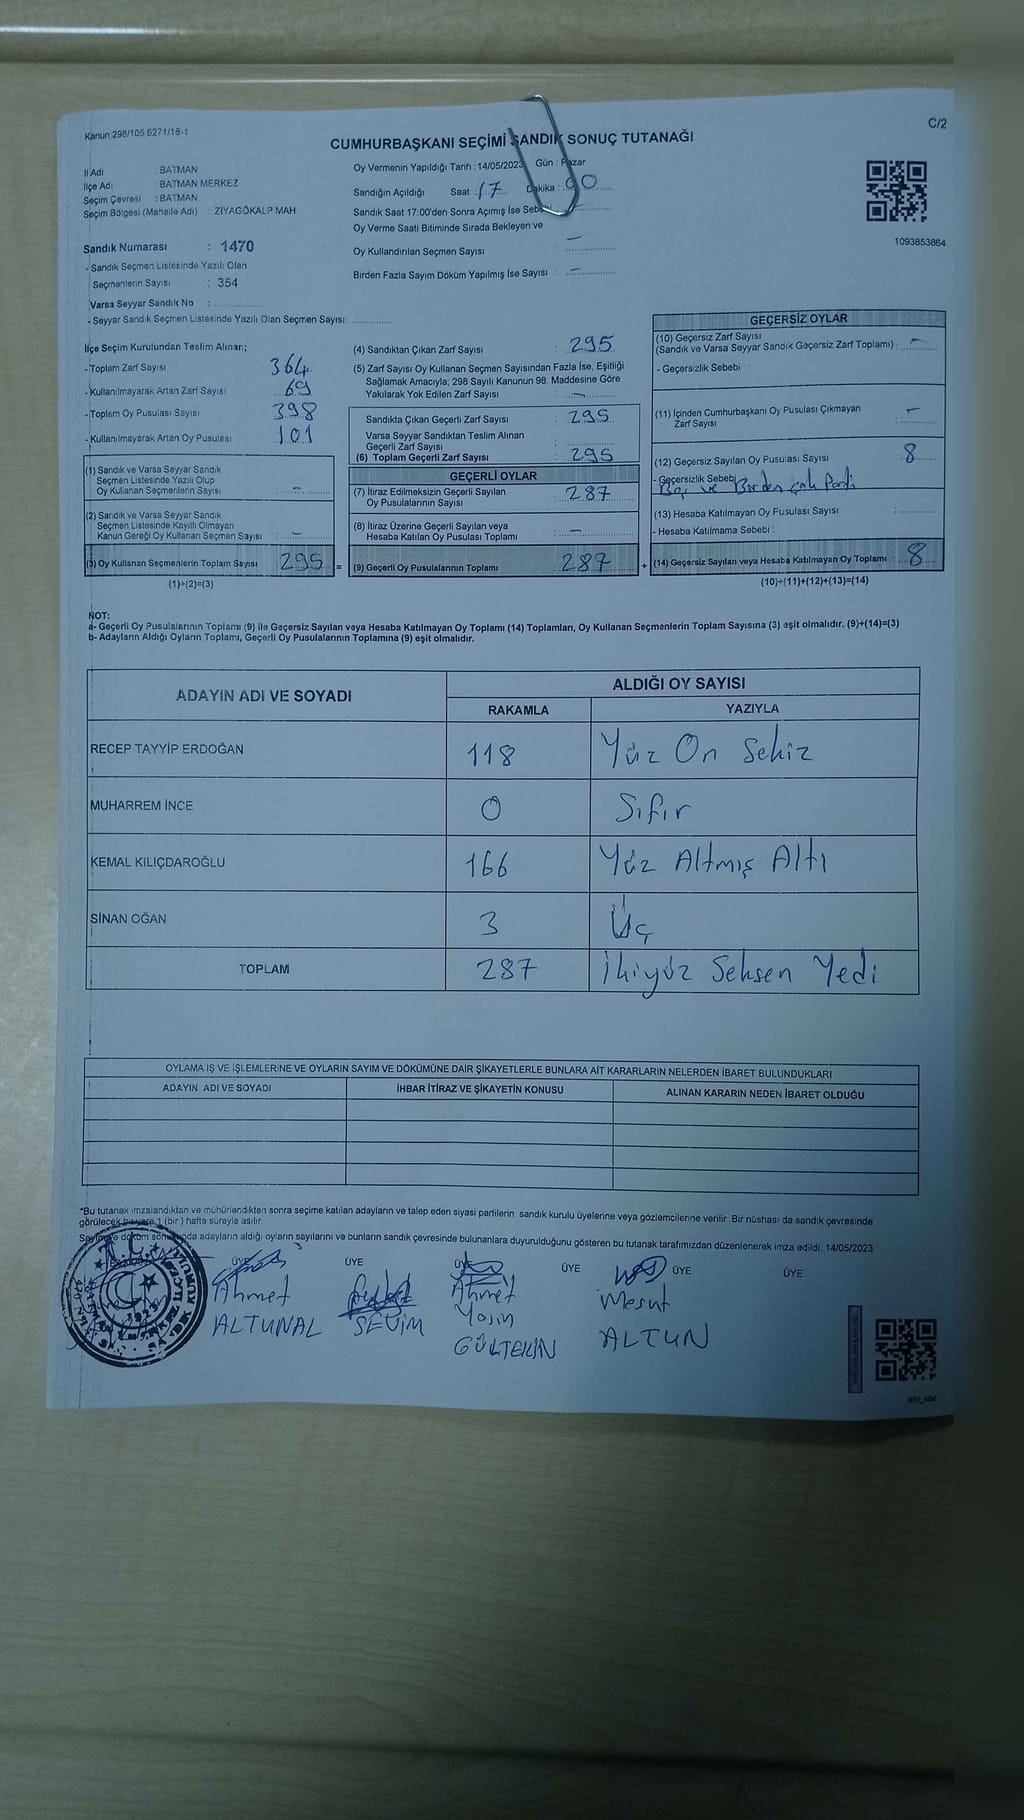 Kanun 298/105 6271/18-1
C/2
CUMHURBAŞKANI SEÇİMİ SANDIK SONUÇ TUTANAĞI
İl Adı : BATMAN
İlçe Adı : BATMAN MERKEZ
Seçim Çevresi : BATMAN
Seçim Bölgesi (Mahalle Adı) : ZİYAGÖKALP MAH.
Sandık Numarası : 1470
- Sandık Seçmen Listesinde Yazılı Olan
Seçmenlerin Sayısı : 354
Varsa Seyyar Sandık No :
- Seyyar Sandık Seçmen Listesinde Yazılı Olan Seçmen Sayısı:
Oy Vermenin Yapıldığı Tarih : 14/05/2023 Gün : Pazar
Sandığın Açıldığı Saat : 17 Dakika : 00
Sandık Saat 17:00'den Sonra Açımış İse Sebebi
Oy Verme Saati Bitiminde Sırada Bekleyen ve
Oy Kullandırılan Seçmen Sayısı : —
Birden Fazla Sayım Döküm Yapılmış İse Sayısı : —
1093853864
İlçe Seçim Kurulundan Teslim Alınan;
- Toplam Zarf Sayısı 364
- Kullanılmayarak Artan Zarf Sayısı 69
- Toplam Oy Pusulası Sayısı 398
- Kullanılmayarak Artan Oy Pusulası 101
(1) Sandık ve Varsa Seyyar Sandık
Seçmen Listesinde Yazılı Olup
Oy Kullanan Seçmenlerin Sayısı : —
(2) Sandık ve Varsa Seyyar Sandık
Seçmen Listesinde Kayıtlı Olmayan
Kanun Gereği Oy Kullanan Seçmen Sayısı : —
(3) Oy Kullanan Seçmenlerin Toplam Sayısı 295 =
(1)+(2)=(3)
(4) Sandıktan Çıkan Zarf Sayısı : 295
(5) Zarf Sayısı Oy Kullanan Seçmen Sayısından Fazla İse, Eşitliği
Sağlamak Amacıyla; 298 Sayılı Kanunun 98. Maddesine Göre
Yakılarak Yok Edilen Zarf Sayısı : —
Sandıkta Çıkan Geçerli Zarf Sayısı : 295
Varsa Seyyar Sandıktan Teslim Alınan
Geçerli Zarf Sayısı :
(6) Toplam Geçerli Zarf Sayısı : 295
GEÇERLİ OYLAR
(7) İtiraz Edilmeksizin Geçerli Sayılan
Oy Pusulalarının Sayısı : 287
(8) İtiraz Üzerine Geçerli Sayılan veya
Hesaba Katılan Oy Pusulası Toplamı : —
(9) Geçerli Oy Pusulalarının Toplamı : 287 +
GEÇERSİZ OYLAR
(10) Geçersiz Zarf Sayısı
(Sandık ve Varsa Seyyar Sandık Geçersiz Zarf Toplamı) : —
- Geçersizlik Sebebi :
(11) İçinden Cumhurbaşkanı Oy Pusulası Çıkmayan
Zarf Sayısı : —
(12) Geçersiz Sayılan Oy Pusulası Sayısı : 8
- Geçersizlik Sebebi ve Birden çok Parti
(13) Hesaba Katılmayan Oy Pusulası Sayısı :
- Hesaba Katılmama Sebebi :
(14) Geçersiz Sayılan veya Hesaba Katılmayan Oy Toplamı : 8
(10)+(11)+(12)+(13)=(14)
NOT:
a- Geçerli Oy Pusulalarının Toplamı (9) ile Geçersiz Sayılan veya Hesaba Katılmayan Oy Toplamı (14) Toplamları, Oy Kullanan Seçmenlerin Toplam Sayısına (3) eşit olmalıdır. (9)+(14)=(3)
b- Adayların Aldığı Oyların Toplamı, Geçerli Oy Pusulalarının Toplamına (9) eşit olmalıdır.
ADAYIN ADI VE SOYADI ALDIĞI OY SAYISI
RAKAMLA YAZIYLA
RECEP TAYYİP ERDOĞAN 118 Yüz On Sekiz
MUHARREM İNCE 0 Sıfır
KEMAL KILIÇDAROĞLU 166 Yüz Altmış Altı
SİNAN OĞAN 3 Üç
TOPLAM 287 İkiyüz Seksen Yedi
OYLAMA İŞ VE İŞLEMLERİNE VE OYLARIN SAYIM VE DÖKÜMÜNE DAİR ŞİKAYETLERLE BUNLARA AİT KARARLARIN NELERDEN İBARET BULUNDUKLARI
ADAYIN ADI VE SOYADI İHBAR İTİRAZ VE ŞİKAYETİN KONUSU ALINAN KARARIN NEDEN İBARET OLDUĞU
*Bu tutanak imzalandıktan ve mühürlendikten sonra seçime katılan adayların ve talep eden siyasi partilerin sandık kurulu üyelerine veya gözlemcilerine verilir. Bir nüshası da sandık çevresinde
görülecek bir yere 1 (bir) hafta süreyle asılır.
Sayım ve döküm sonunda adayların aldığı oyların sayılarını ve bunların sandık çevresinde bulunanlara duyurulduğunu gösteren bu tutanak tarafımızdan düzenlenerek imza edildi. 14/05/2023
ÜYE ÜYE ÜYE ÜYE ÜYE ÜYE
Ahmet ALTUNAL
SEVİM
Ahmet Yasin GÜLTEKİN
Mesut ALTUN
T.C.